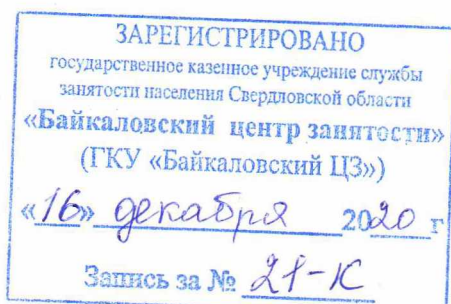 ЗАРЕГИСТРИРОВАНО
государственное казенное учреждение службы
занятости населения Свердловской области
«Байкаловский центр занятости»
(ГКУ «Байкаловский ЦЗ»)
«16» декабря 2020 г
Запись за № 21-К